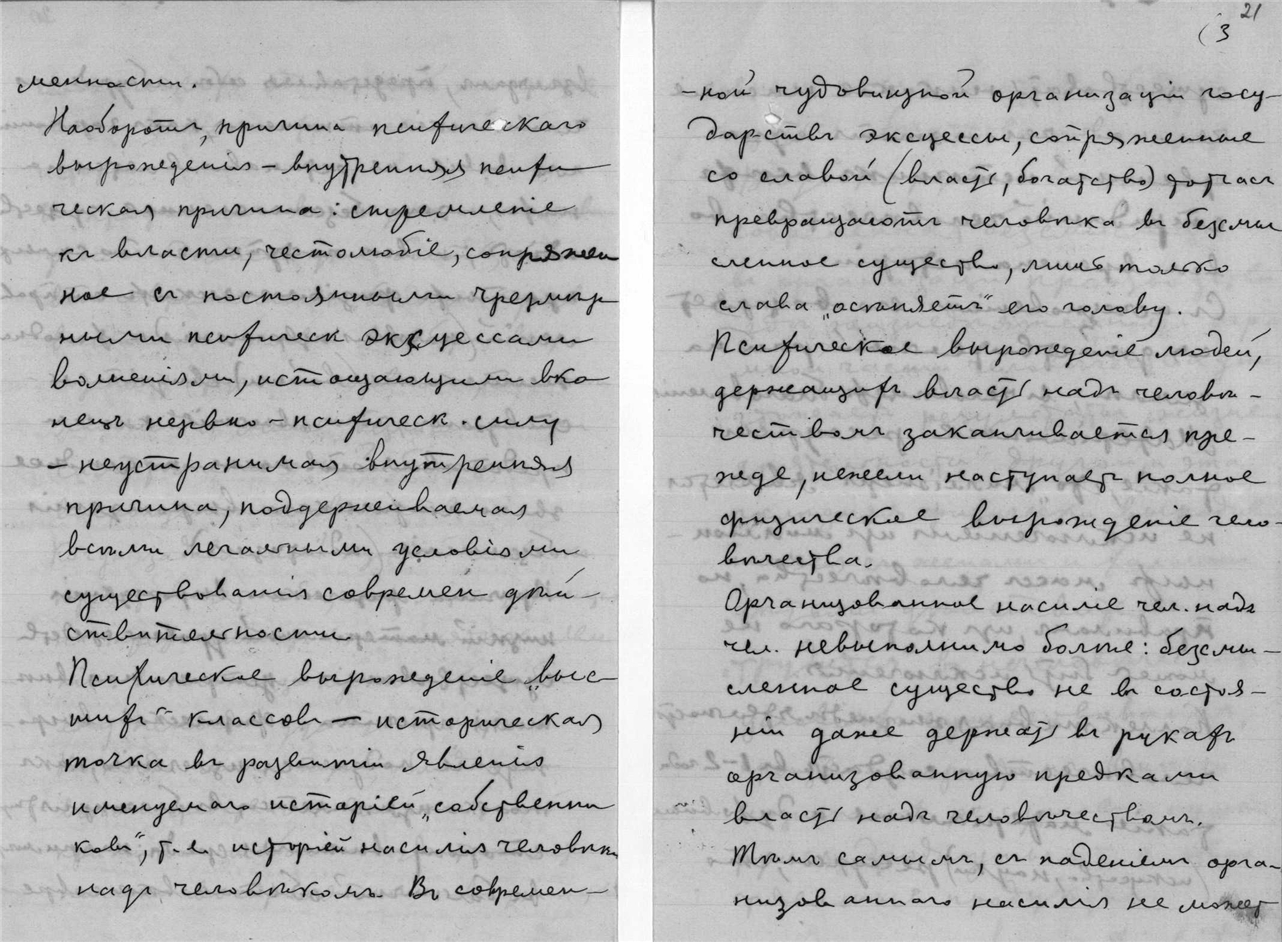 менности.
Наоборотъ, причина психическаго
вырожденія – внутренняя психи
ческая причина: стремленіе
къ власти, честолюбіе, сопряжен
ное съ постоянными чрезмѣр
ными психическ эксцессами
волненіями, истощающими вко
нецъ нервно-психическ. силу
– неустранимая внутренняя
причина, поддерживаемая
всѣми легальными условіями
существованія современ дѣй-
ствительности
Психическое вырожденіе „выс-
шихъ“ классовъ – историческая
точка въ развитіи явленія
именуемаго исторіей „собственни
ковъ“, т.е. исторіей насилія человѣка
надъ человѣкомъ. Въ современ-
21
(3
-ной чудовищной организаціи госу-
дарствъ эксцессы, сопряженные
со славой (власть, богатство) тотчасъ
превращаютъ человѣка въ безсмы
сленное существо, лишь только
слава „осѣняетъ“ его голову.
Психическое вырожденіе людей,
держащихъ власть надъ человѣ-
чествомъ заканчивается пре-
жде, нежели наступаетъ полное
физическое вырожденіе чело-
вѣчества.
Организованное насиліе чел. надъ
чел. невыполнимо болѣе: безсмы-
сленное существо не въ состоя-
ніи даже держать въ рукахъ
организованную предками
власть надъ человѣчествомъ.
Тѣмъ самымъ, съ паденіемъ орга-
низованнаго насилія не может